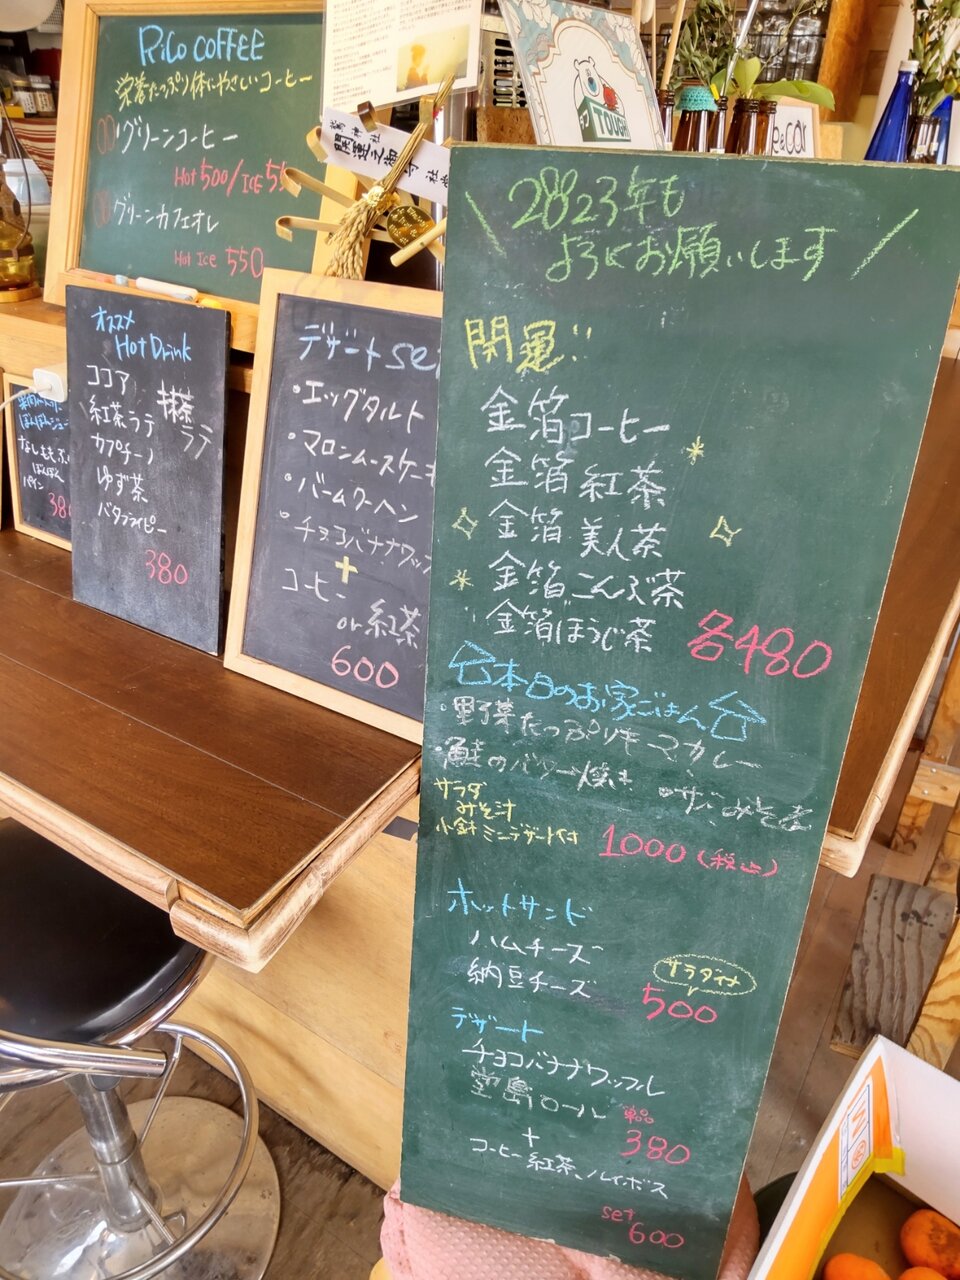 RiCo COFFEE
栄養たっぷり体にやさしいコーヒー
グリーンコーヒー
Hot 500/ICE 55
グリーンカフェオレ
Hot Ice 550
開運之御守
TOUGH
オススメ
Hot Drink
ココア
紅茶ラテ
抹茶ラテ
カプチーノ
ゆず茶
バタフライピー
380
パイン
38
デザートse
・エッグタルト
・マロンムースケーキ
・バームクーヘン
・チョコバナナワッフ
+
コーヒー
or 紅茶
600
2023年も
よろしくお願いします
開運!!
金箔コーヒー
金箔紅茶
金箔美人茶
金箔こんぶ茶
金箔ほうじ茶
各480
本日のお家ごはん
・野菜たっぷりキーマカレー
・鮭のバター焼き
サラダ
みそ汁
小鉢 ミニデザート付
1000(税込)
ホットサンド
ハムチーズ
納豆チーズ
サラダ付
500
デザート
チョコバナナワッフル
堂島ロール
単品
380
+
コーヒー 紅茶、ルイボス
set
600